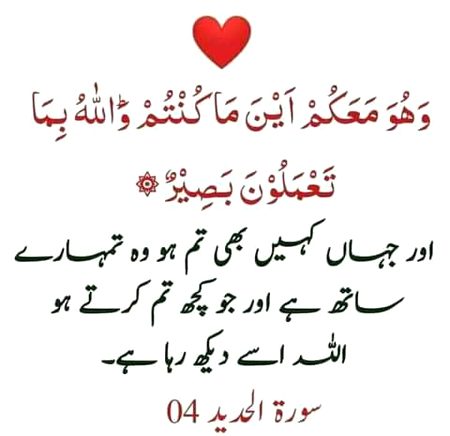 وَهُوَ مَعَكُمْ اَيْنَ مَا كُنْتُمْ ؕ وَاللّٰهُ بِمَا
تَعْمَلُوْنَ بَصِيْرٌ ۞
اور جہاں کہیں بھی تم ہو وہ تمہارے
ساتھ ہے اور جو کچھ تم کرتے ہو
اللہ اسے دیکھ رہا ہے۔
سورۃ الحدید 04